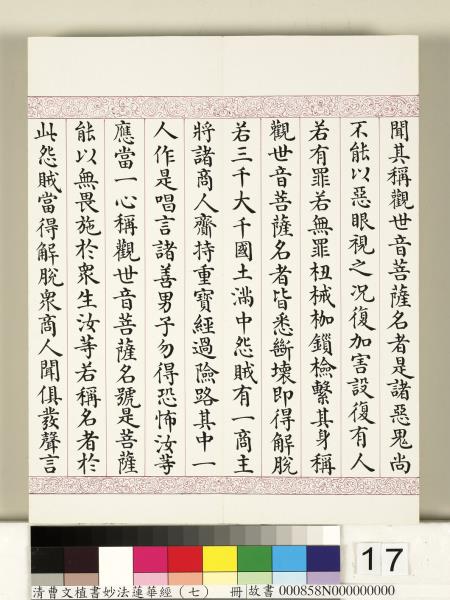 聞其稱觀世音菩薩名者是諸惡鬼尚
不能以惡眼視之况復加害設復有人
若有罪若無罪杻械枷鎖檢繫其身稱
觀世音菩薩名者皆悉斷壞即得解脫
若三千大千國土滿中怨賊有一商主
將諸商人齎持重寶經過險路其中一
人作是唱言諸善男子勿得恐怖汝等
應當一心稱觀世音菩薩名號是菩薩
能以無畏施於眾生汝等若稱名者於
此怨賊當得解脫眾商人聞俱發聲言
17
清曹文植書妙法蓮華經（七） 冊 故書 000858N000000000